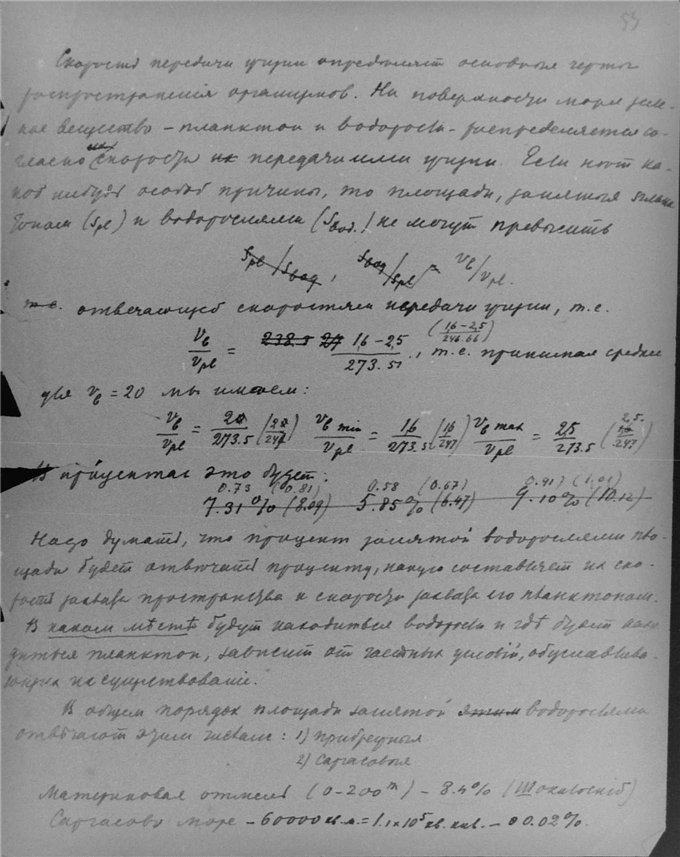 53
Скорость передачи жизни определяет основныя черты
распространения организмов. На поверхности моря жив-
ное вещество – планктон и водоросли – распределяется со-
гласно их скорости передачи ими жизни. Если нет ка-
кой нибудь особой причины, то площади, занятыя планк
тоном (Spl) и водорослями (Sвод.) не могут превысить
Spl/Sвод, Sвод/Spl = vв/vpl.
т.е. отвечающей скоростям передачи жизни, т.е.
vв/vpl = 238.5 27 1,6–2,5/273.51 (1,6–2,5/246.66), т.е. принимая среднее
для vв = 20 мы имеем:
vв/vpl = 2/273.5 (2/247) vв min/vpl = 1,6/273.5 (1,6/247) vв max/vpl = 2,5/273.5 (2,5./247)
В процентах это будет:
0.73 (0,81) 0.58 (0.67) 0.91 (1,01)
7.31% (8.09) 5.85% (6.47) 9.10% (10.12)
Надо думать, что процент занятой водорослями пло-
щади будет отвечать проценту, какую составляет их ско-
рость захвата пространства к скорости захвата его планктоном.
В каком месте будут находиться водоросли и где будет нахо-
диться планктон, зависит от частных условий, обуславлива-
ющих их существование.
В общем порядок площади занятой этим водорослями
отвечают этим числам: 1) прибрежныя
2) Саргасовыя
Материковая отмель (0–200 m) – 8.4% (III )
Саргасово море – 60000 кв.м. = 1.1×10⁵ кв. км. – 0.02%.